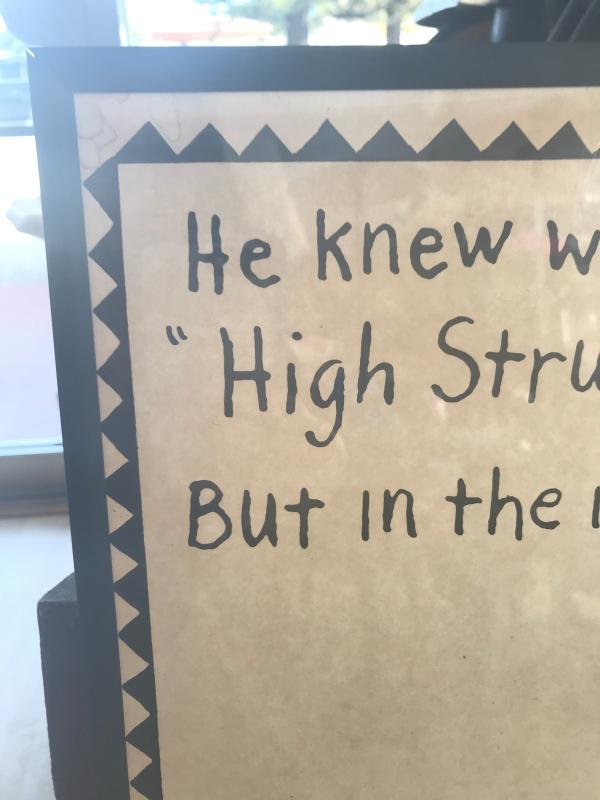 He knew w
“High Stru
But in the